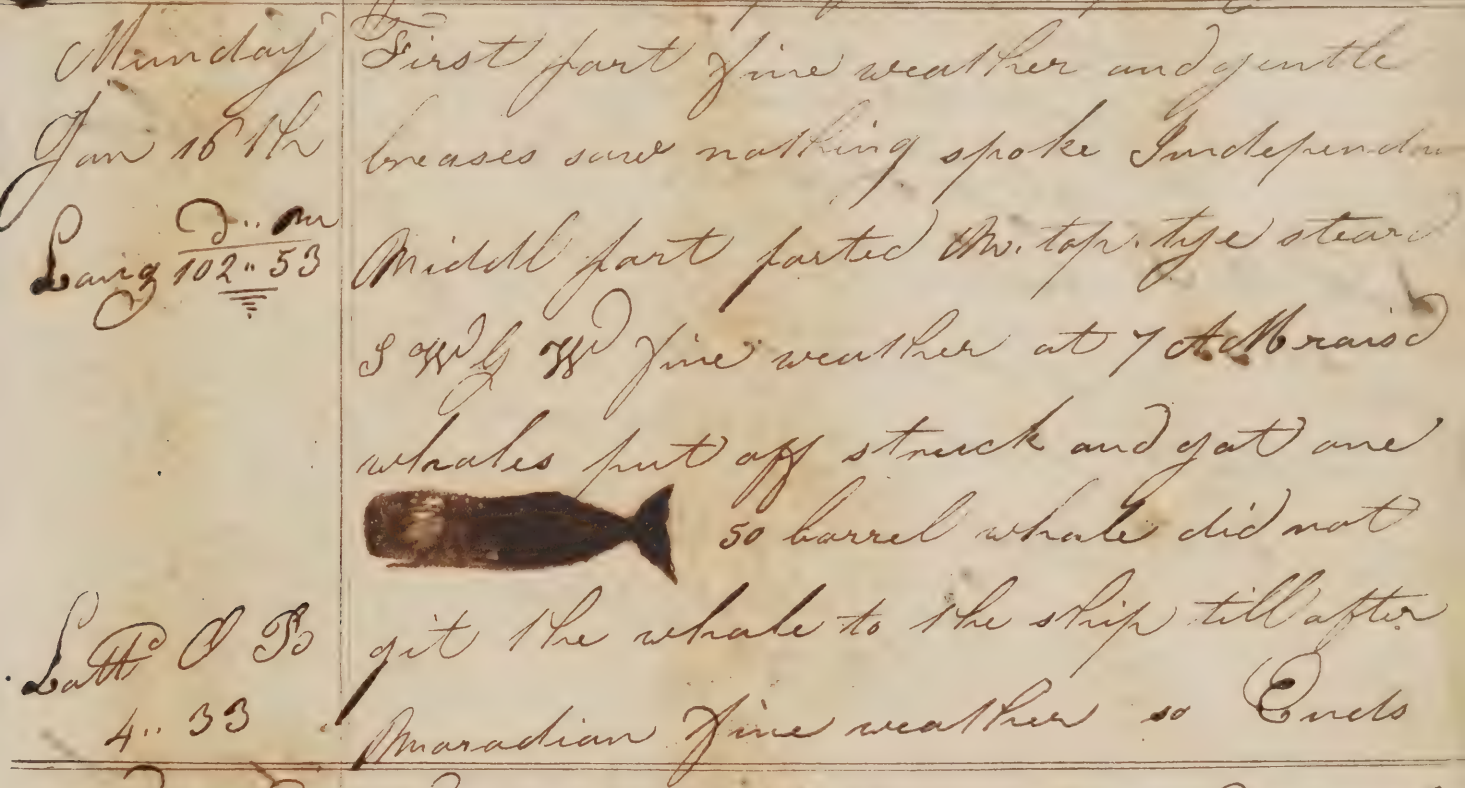 Munday
Jan 16th
D.. m
Long 102.. 53
Latt O B
4.. 33
First part fine weather and gentle
breases saw nothing spoke
Middl part parted M. top. tye steard
S W b W fine weather at 7 AM raisd
whales put off struck and got one
50 barrel whale did not
git the whale to the ship till after
maradian fine weather so Ends